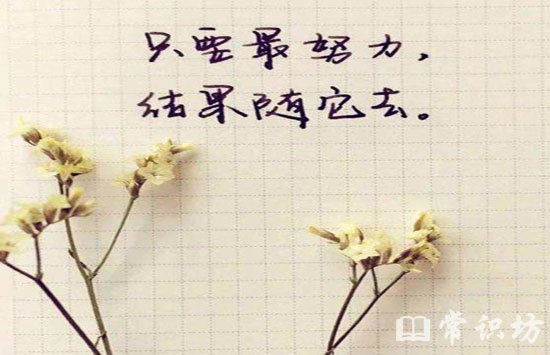 只要最努力，
结果随它去。
常识坊